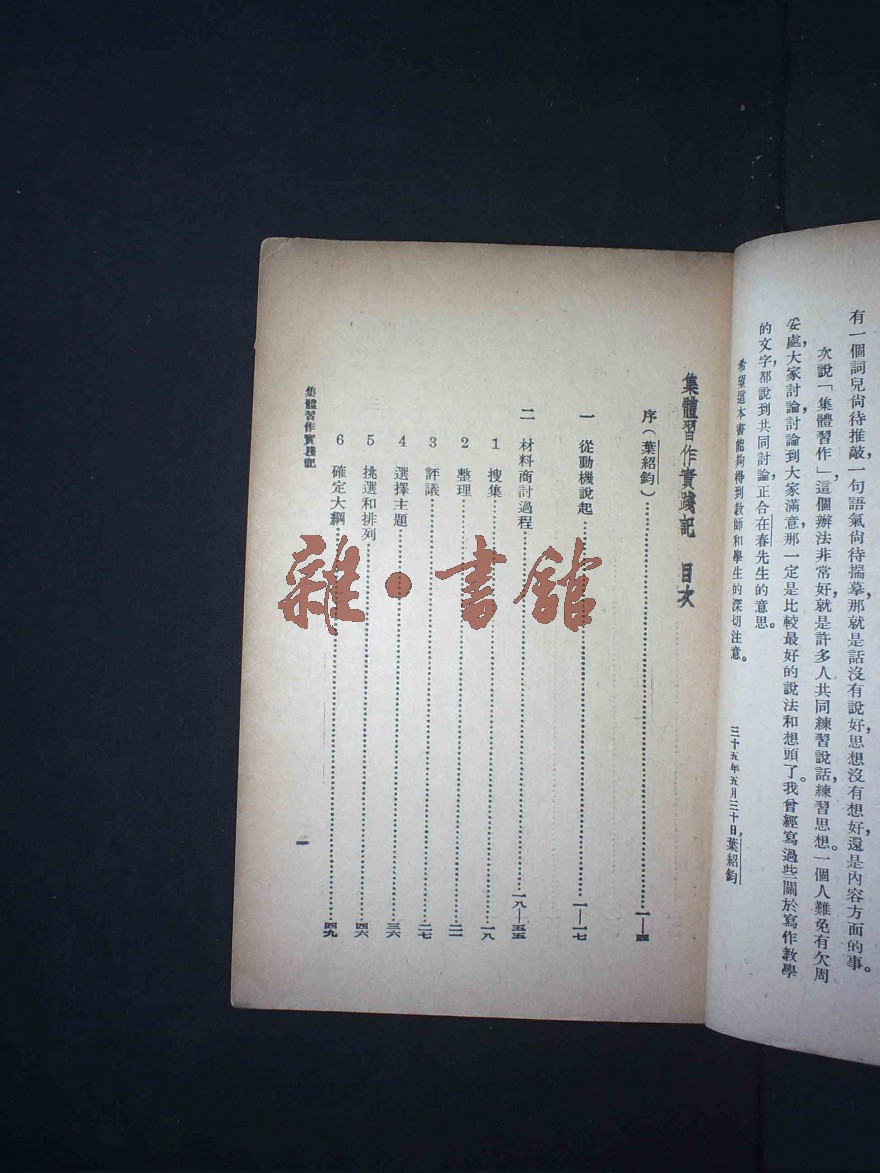 有一個詞兒尙待推敲，一句語氣尙待揣摹，那就是話沒有說好，思想沒有想好，還是內容方面的事。
次說「集體習作」，這個辦法非常好，就是許多人共同練習說話，練習思想。一個人難免有欠周
妥處，大家討論討論到大家滿意，那一定是比較最好的說法和想頭了。我曾經寫過些關於寫作教學
的文字，都說到共同討論，正合在春先生的意思。
希望這本書能夠得到敎師和學生的深切注意。
三十五年五月三十日，葉紹鈞
集體習作實踐記 目次
序（葉紹鈞）……一—四
一 從動機說起……一—一七
二 材料商討過程……一八—五五
1 搜集……一八
2 整理……二一
3 評議……二七
4 選擇主題……三六
5 挑選和排列……四六
6 確定大綱……四九
集體習作實踐記
一
雜·書館